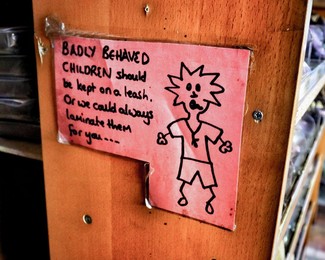 BADLY BEHAVED
CHILDREN should
be kept on a leash,
Or we could always
laminate them
for you....